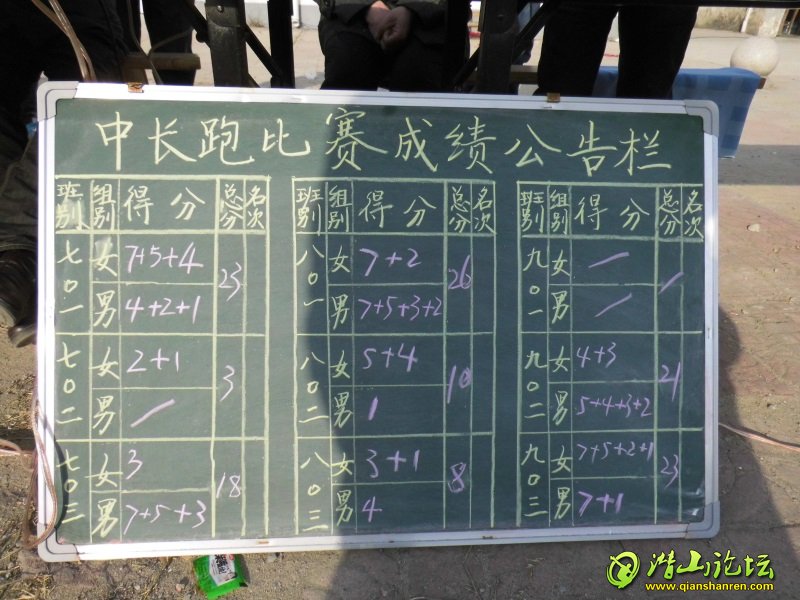 中长跑比赛成绩公告栏
班别 组别 得分 总分 名次 班别 组别 得分 总分 名次 班别 组别 得分 总分 名次
七〇一 女 7+5+4 23 八〇一 女 7+2 26 九〇一 女 / /
男 4+2+1 男 7+5+3+2 男 /
七〇二 女 2+1 3 八〇二 女 5+4 10 九〇二 女 4+3 21
男 / 男 1 男 5+4+3+2
七〇三 女 3 18 八〇三 女 3+1 8 九〇三 女 7+5+2+1 23
男 7+5+3 男 4 男 7+1
潜山论坛
www.qianshanren.com